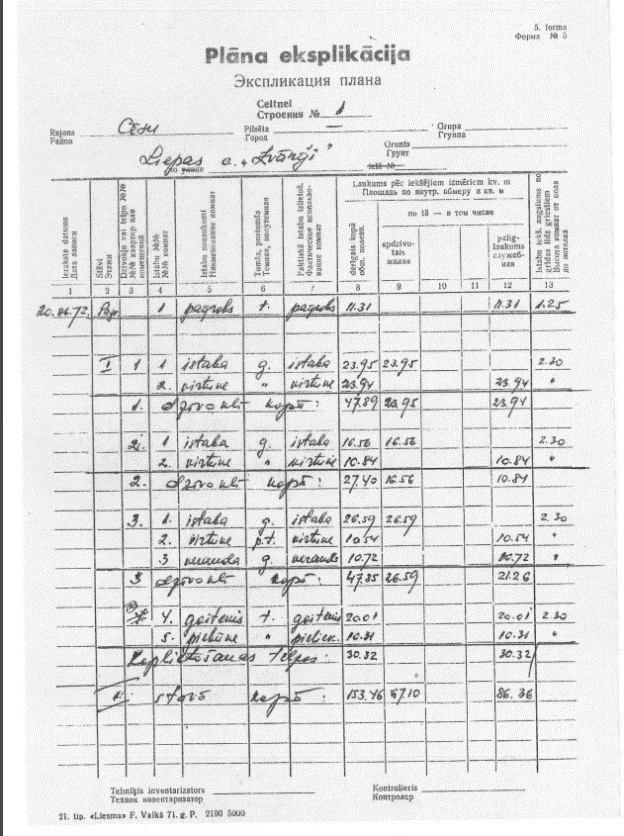 5. forma
Форма № 5
Plāna eksplikācija
Экспликация плана
Celtnei
Строения № 1
Rajons
Район
Cēsu
Pilsēta
Город
—
Grupa
Группа
Liepas c. „Zvārģi"
по улице
Grunts
Грунт
ielā №
Ieraksta datums
Дата записи
Stāvi
Этажи
Dzīvokļa vai telpu №№
№ квартир или помещений
Istabu №№
№ комнат
Istabu nosaukumi
Наименование комнат
Tumša, pustumša
Темная, полутемная
Faktiskā istabu izlietoš.
Фактическое использование комнат
Laukums pēc iekšējiem izmēriem kv. m
Площадь по внутр. обмеру в кв. м
derīgais kopā
общ. полезн.
no tā — в том числе
apdzīvotais
жилая
palīglaukums
служебная
Istabu iekš. augstums no grīdas līdz griestiem
Высота комнат от пола до потолка
1 2 3 4 5 6 7 8 9 10 11 12 13
20.06.72. Pagr. 1 pagrabs t. pagrabs 11.31 11.31 1.25
I 1 1 istaba g. istaba 23.95 23.95 2.30
2. virtuve " virtuve 23.94 23.94 "
1. dzīvoklī kopā: 47.89 23.95 23.94
2. 1 istaba g. istaba 16.56 16.56 2.30
2. virtuve " virtuve 10.84 10.84 "
2. dzīvoklī kopā: 27.40 16.56 10.84
3. 1. istaba g. istaba 26.59 26.59 2.30
2. virtuve p.t. virtuve 10.54 10.54 "
3 veranda g. veranda 10.72 10.72 "
3 dzīvoklī kopā: 47.85 26.59 21.26
4. gaitenis t. gaitenis 20.01 20.01 2.30
5. pieliek. 10.31 10.31 "
Koplietošanas telpas: 30.32 30.32
stāvā kopā: 153.46 67.10 86.36
Tehniķis inventarizators
Техник инвентаризатор
Kontrolieris
Контролер
21. tip. «Liesma» F. Valkā 71. g. P. 2190 5000